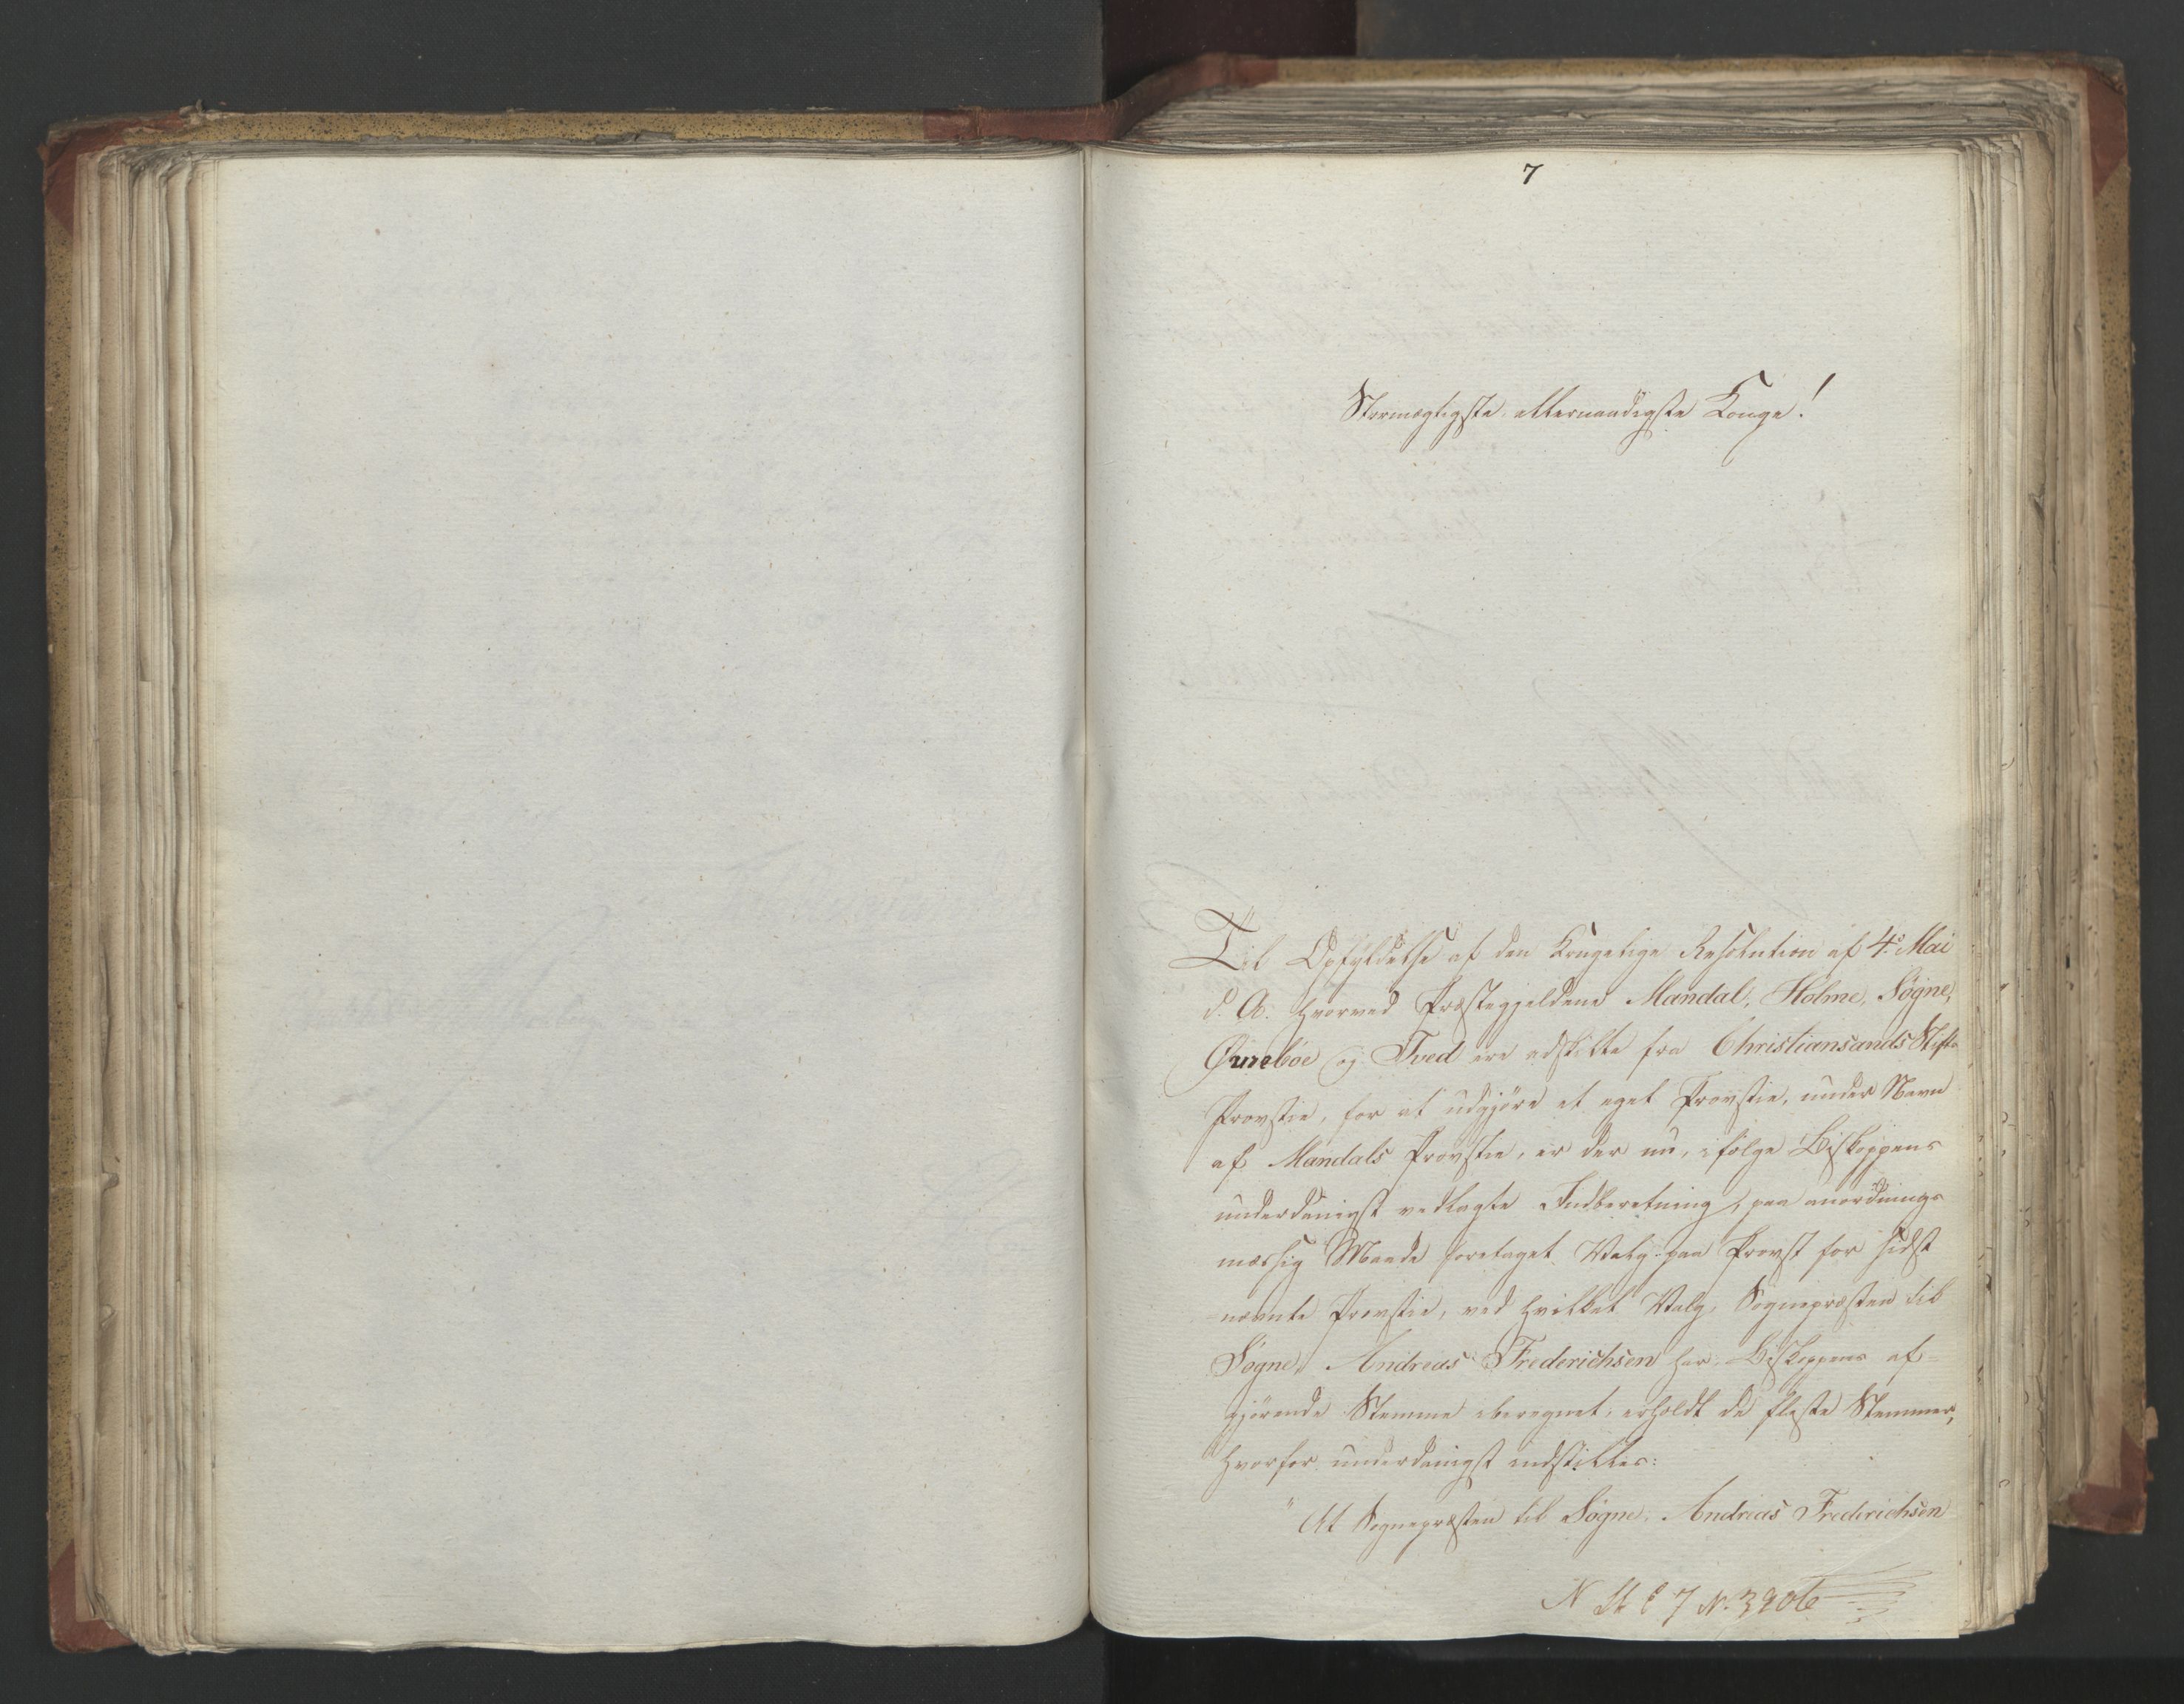 7
Stormægtigste, allernaadigste Konge!
Til Opfyldelse af den Kongelige Resolution af 4de Mai
d. A. hvorved Præstegjeldene Mandal, Holme, Søgne,
Øurebøe og Tved ere adskilte fra Christiansands Stifts
Provstie, for at udgjøre et eget Provstie, under Navn
af Mandals Provstie, er der nu, ifølge Biskoppens
underdanigst vedlagte Indberetning, paa anordnings
mæssig Maade foretaget Valg paa Provst for sidst
nævnte Provstie, ved hvilket Valg, Sognepræsten til
Søgne, Andreas Frederichsen har, Biskoppens af-
gjørende Stemme iberegnet, erholdt de fleste Stemmer,
hvorfor underdanigst indstilles:
" At Sognepræsten til Søgne, Andreas Frederichsen